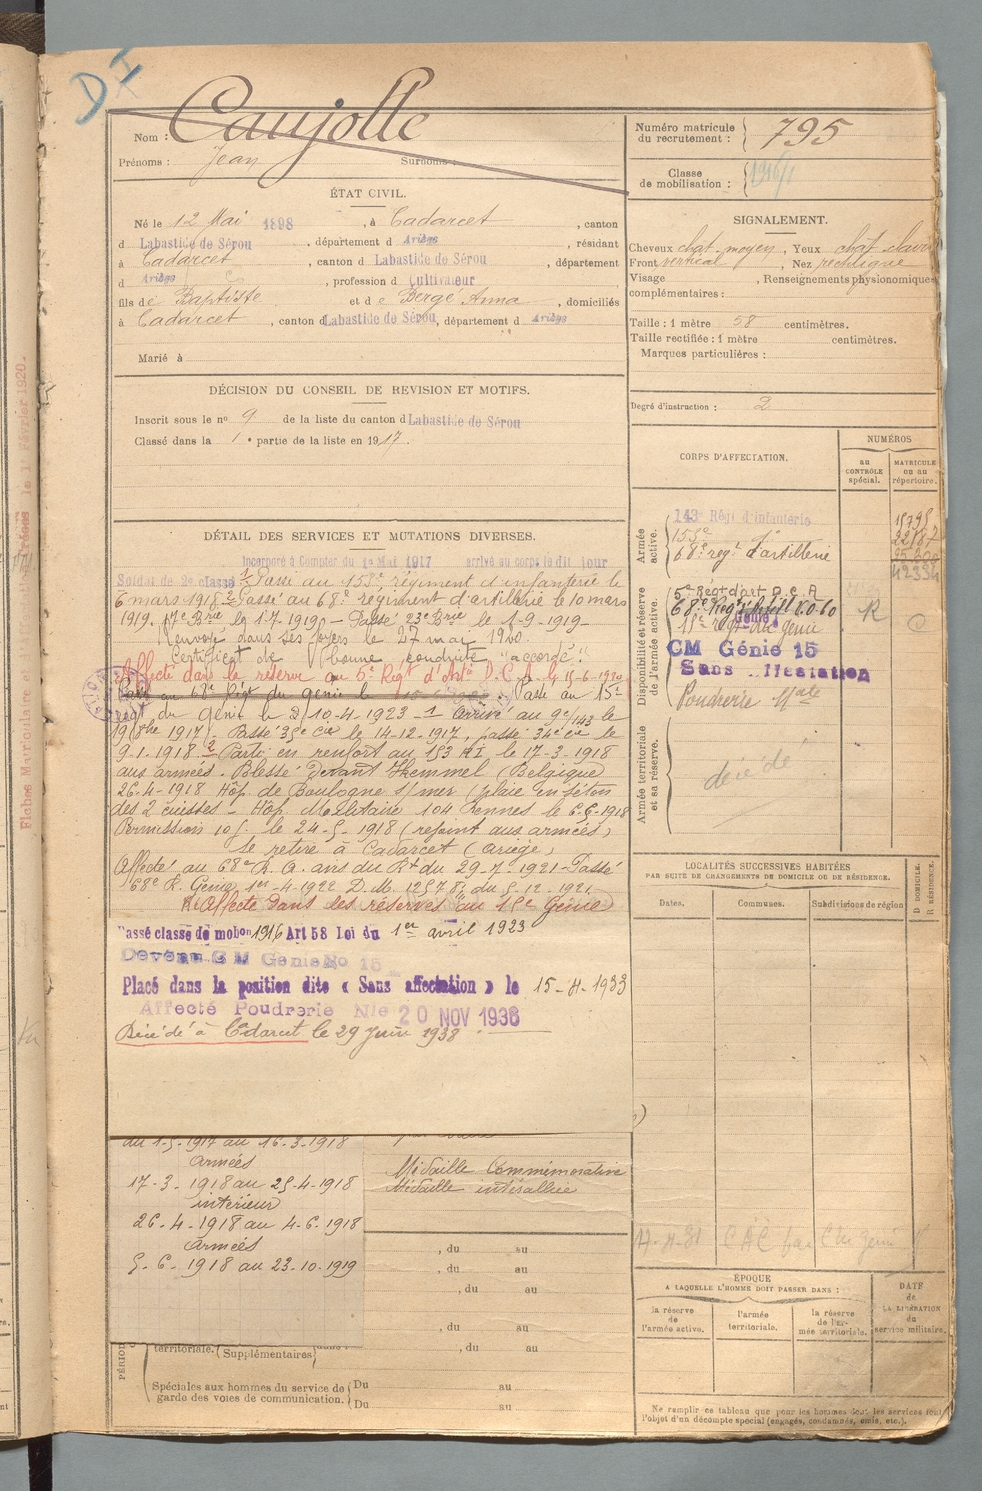 D I
Nom : Caujolle
Prénoms : Jean Surnoms :
Numéro matricule
du recrutement : 795
Classe
de mobilisation : 1916/1
ÉTAT CIVIL.
Né le 12 Mai 1898, à Cadarcet, canton
d Labastide de Sérou, département d Ariège, résidant
à Cadarcet, canton d Labastide de Sérou, département
d Ariège, profession d Cultivateur
fils de Baptiste et de Berge Anna, domiciliés
à Cadarcet, canton d Labastide de Sérou, département d Ariège
Marié à
SIGNALEMENT.
Cheveux chat. moyen, Yeux chat. clairs
Front vertical, Nez rectiligne
Visage , Renseignements physionomiques
complémentaires :
Taille : 1 mètre 58 centimètres.
Taille rectifiée : 1 mètre centimètres.
Marques particulières :
Degré d'instruction : 2
DÉCISION DU CONSEIL DE REVISION ET MOTIFS.
Inscrit sous le no 9 de la liste du canton d Labastide de Sérou
Classé dans la 1e partie de la liste en 1917.
DÉTAIL DES SERVICES ET MUTATIONS DIVERSES.
Incorporé à Compter du 1er Mai 1917 arrivé au corps le dit jour
Soldat de 2e classe 1 Passé au 153e régiment d'infanterie le
6 mars 1918. 2 Passé au 68e régiment d'artillerie le 10 mars
1919. 17e Brie le 1-7-1919 - Passé 23e Brie le 1-9-1919-
Renvoyé dans ses foyers le 27 mai 1920.
Certificat de bonne conduite "accordé".
Affecté dans la réserve au 5e Régt d'Artie D.C.A. le 15-6-1920
Passé au 68e Régt du génie le Passé au 15e
Régt du Génie le 10-4-1923 - 1 arrivé au 9e/143 le
1917). Passé 35e Cie le 14-12-1917, passé 34e Cie le
9-1-1918 2 Parti en renfort au 153 RI le 17-3-1918
aux armées. Blessé devant Kemmel (Belgique)
26-4-1918 Hôp. de Boulogne s/mer (plaie en séton
des 2 cuisses - Hôp. Militaire 104 Rennes le 6-5-1918
Permission 10 j. le 24-5-1918 (rejoint aux armées)
Se retire à Cadarcet (Ariège)
Affecté au 68e R. A. du 29-7-1921 - Passé
68e R. Génie 1er-4-1922 D.M. du 5-12-1921.
Affecté dans les réserves au 15e Génie
Passé classe de mobon 1916 Art 58 Loi du 1er avril 1923
Devenu C M Génie No 15
Placé dans la position dite « Sans affectation » le 15-4-1933
Affecté Poudrerie Nle 20 NOV 1936
Décédé à Cadarcet le 29 Juin 1938
CORPS D'AFFECTATION.
NUMÉROS
au
CONTRÔLE
spécial.
MATRICULE
OU au
répertoire.
Armée
active.
143e Régt d'Infanterie
153e de
68e regt d'artillerie
15795
22187
42334
Disponibilité et réserve
de l'armée active.
5e Régt d'art D.C.A
68e Regt
Génie
15e regt du Génie
CM Génie 15
Sans affectation
Poudrerie Nale
R
C
Armée territoriale
et sa réserve.
décédé
LOCALITÉS SUCCESSIVES HABITÉES
PAR SUITE DE CHANGEMENTS DE DOMICILE OU DE RÉSIDENCE.
Dates.
Communes.
Subdivisions de région
D DOMICILE.
R RÉSIDENCE.
du 1-5-1917 au 16-3-1918
armées
17-3-1918 au 25-4-1918
intérieur
26-4-1918 au 4-6-1918
armées
5-6-1918 au 23-10-1919
Médaille Commémorative
Médaille interalliée
, du au
, du au
, du au
, du au
, du au
territoriale. (Supplémentaires
Spéciales aux hommes du service de
garde des voies de communication.
Du au
Du au
ÉPOQUE
A LAQUELLE L'HOMME DOIT PASSER DANS :
la réserve
de
l'armée active.
l'armée
territoriale.
la réserve
de l'ar-
mée territoriale.
DATE
de
LA LIBÉRATION
du
service militaire.
Ne remplir ce tableau que pour les hommes dont les services font
l'objet d'un décompte spécial (engagés, condamnés, omis, etc.).